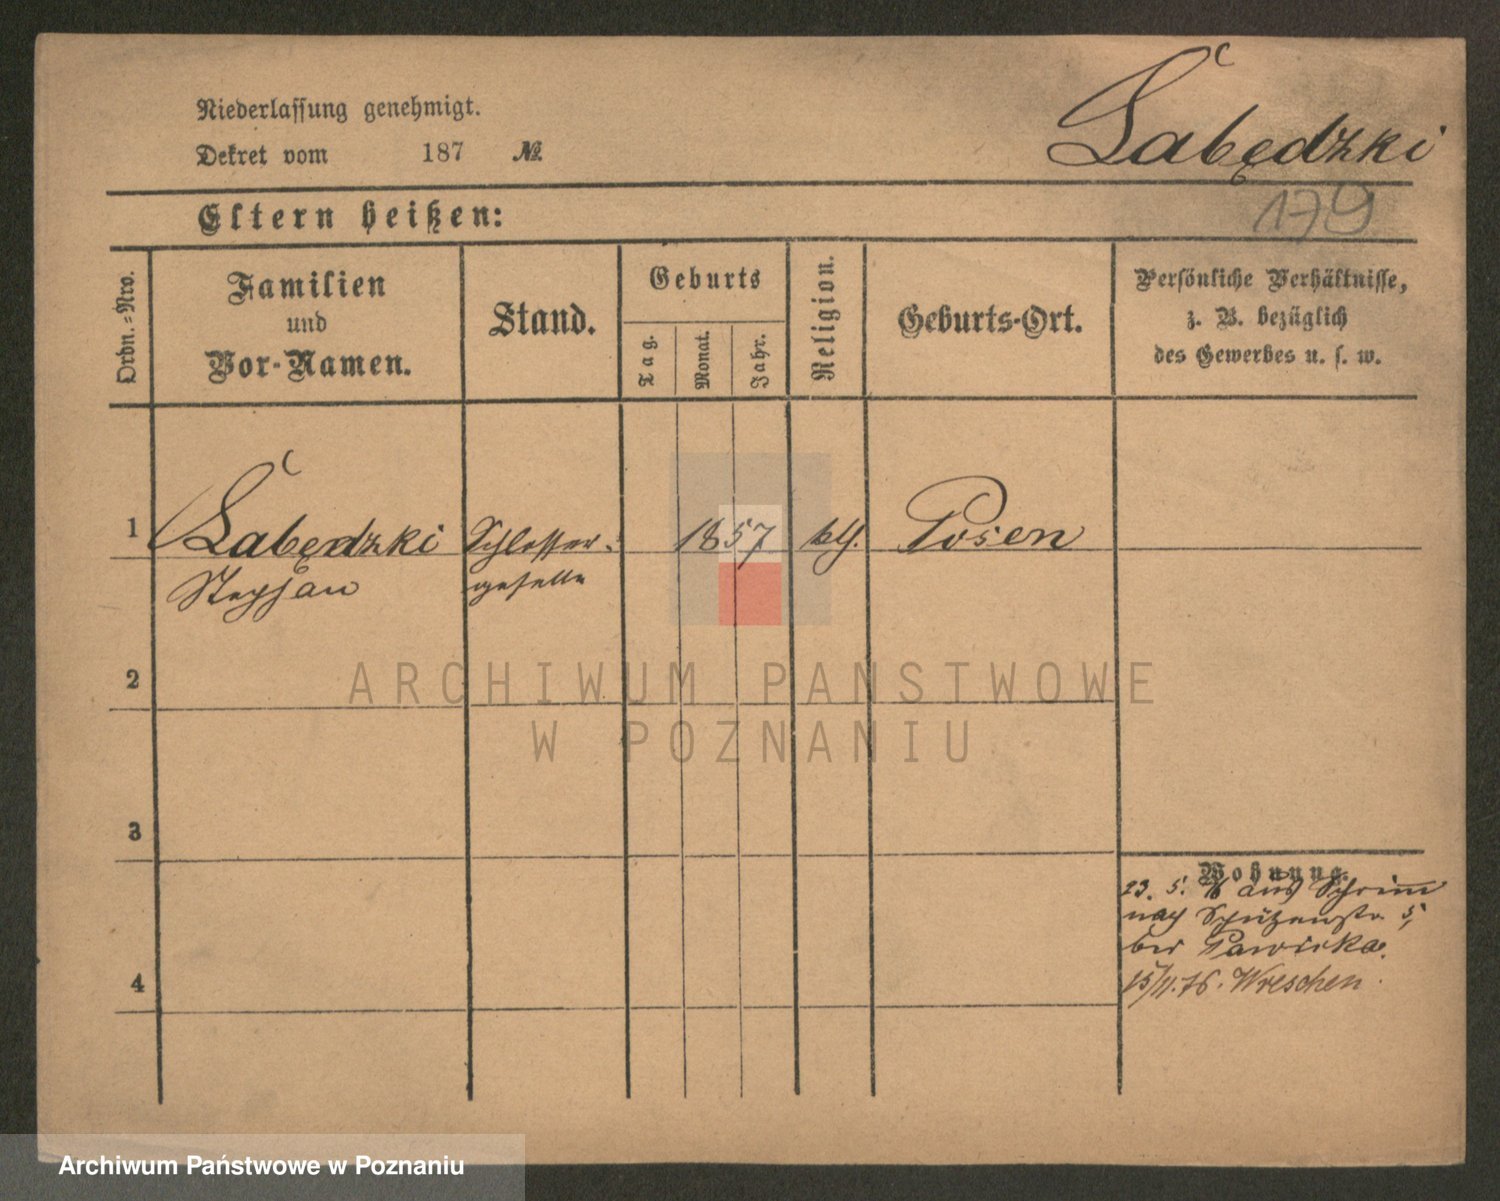 Niederlassung genehmigt.
Dekret vom 187 №.
Łabędzki
179
Eltern heißen:
Ordn.-Nro.
Familien
und
Vor-Namen.
Stand.
Geburts
Tag.
Monat.
Jahr.
Religion.
Geburts-Ort.
Persönliche Verhältnisse,
z. B. bezüglich
des Gewerbes u. s. w.
1 Łabędzki Schlosser- 1857 kth. Posen
Stephan geselle
2
ARCHIWUM PAŃSTWOWE
W POZNANIU
3
Wohnung.
23. 5. 76 aus Schrimm
nach Schützenstr 5,
bei
4
15/11.76. Wreschen.
Archiwum Państwowe w Poznaniu